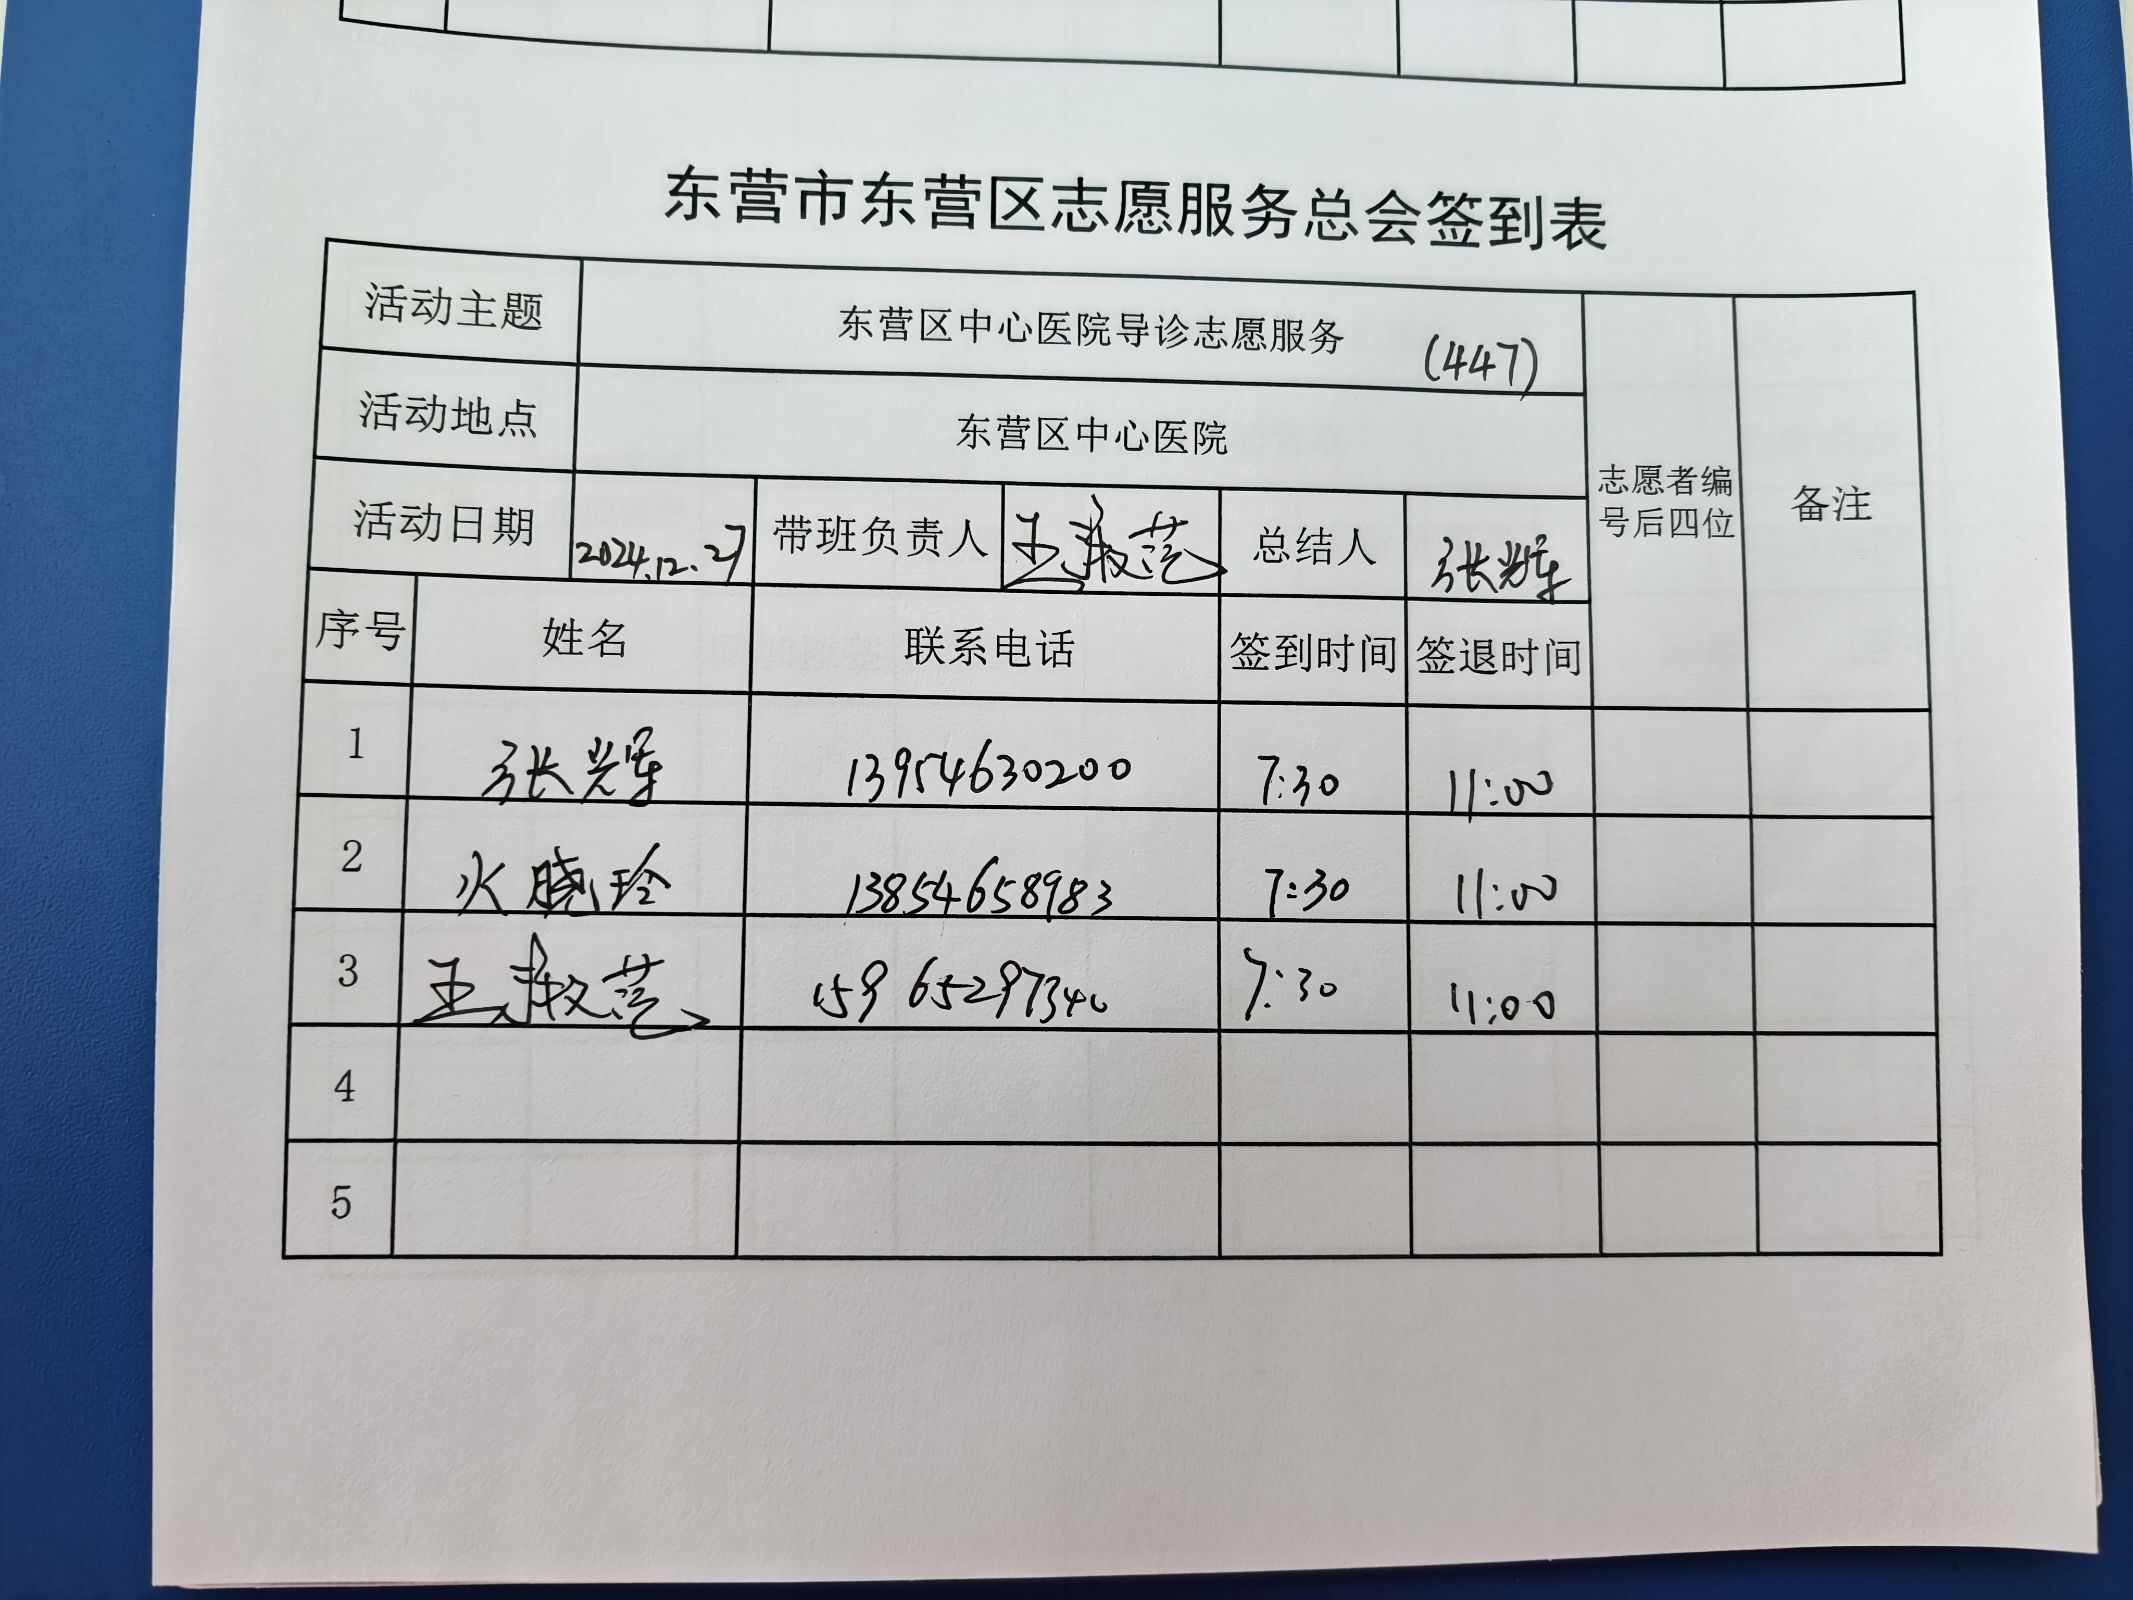 东营市东营区志愿服务总会签到表
活动主题 东营区中心医院导诊志愿服务 (447) 志愿者编号后四位 备注
活动地点 东营区中心医院
活动日期 2024.12.27 带班负责人 王 总结人 张辉
序号 姓名 联系电话 签到时间 签退时间
1 张辉 13954630200 7:30 11:00
2 火晓玲 13854658983 7:30 11:00
3 王 15965297340 7:30 11:00
4
5